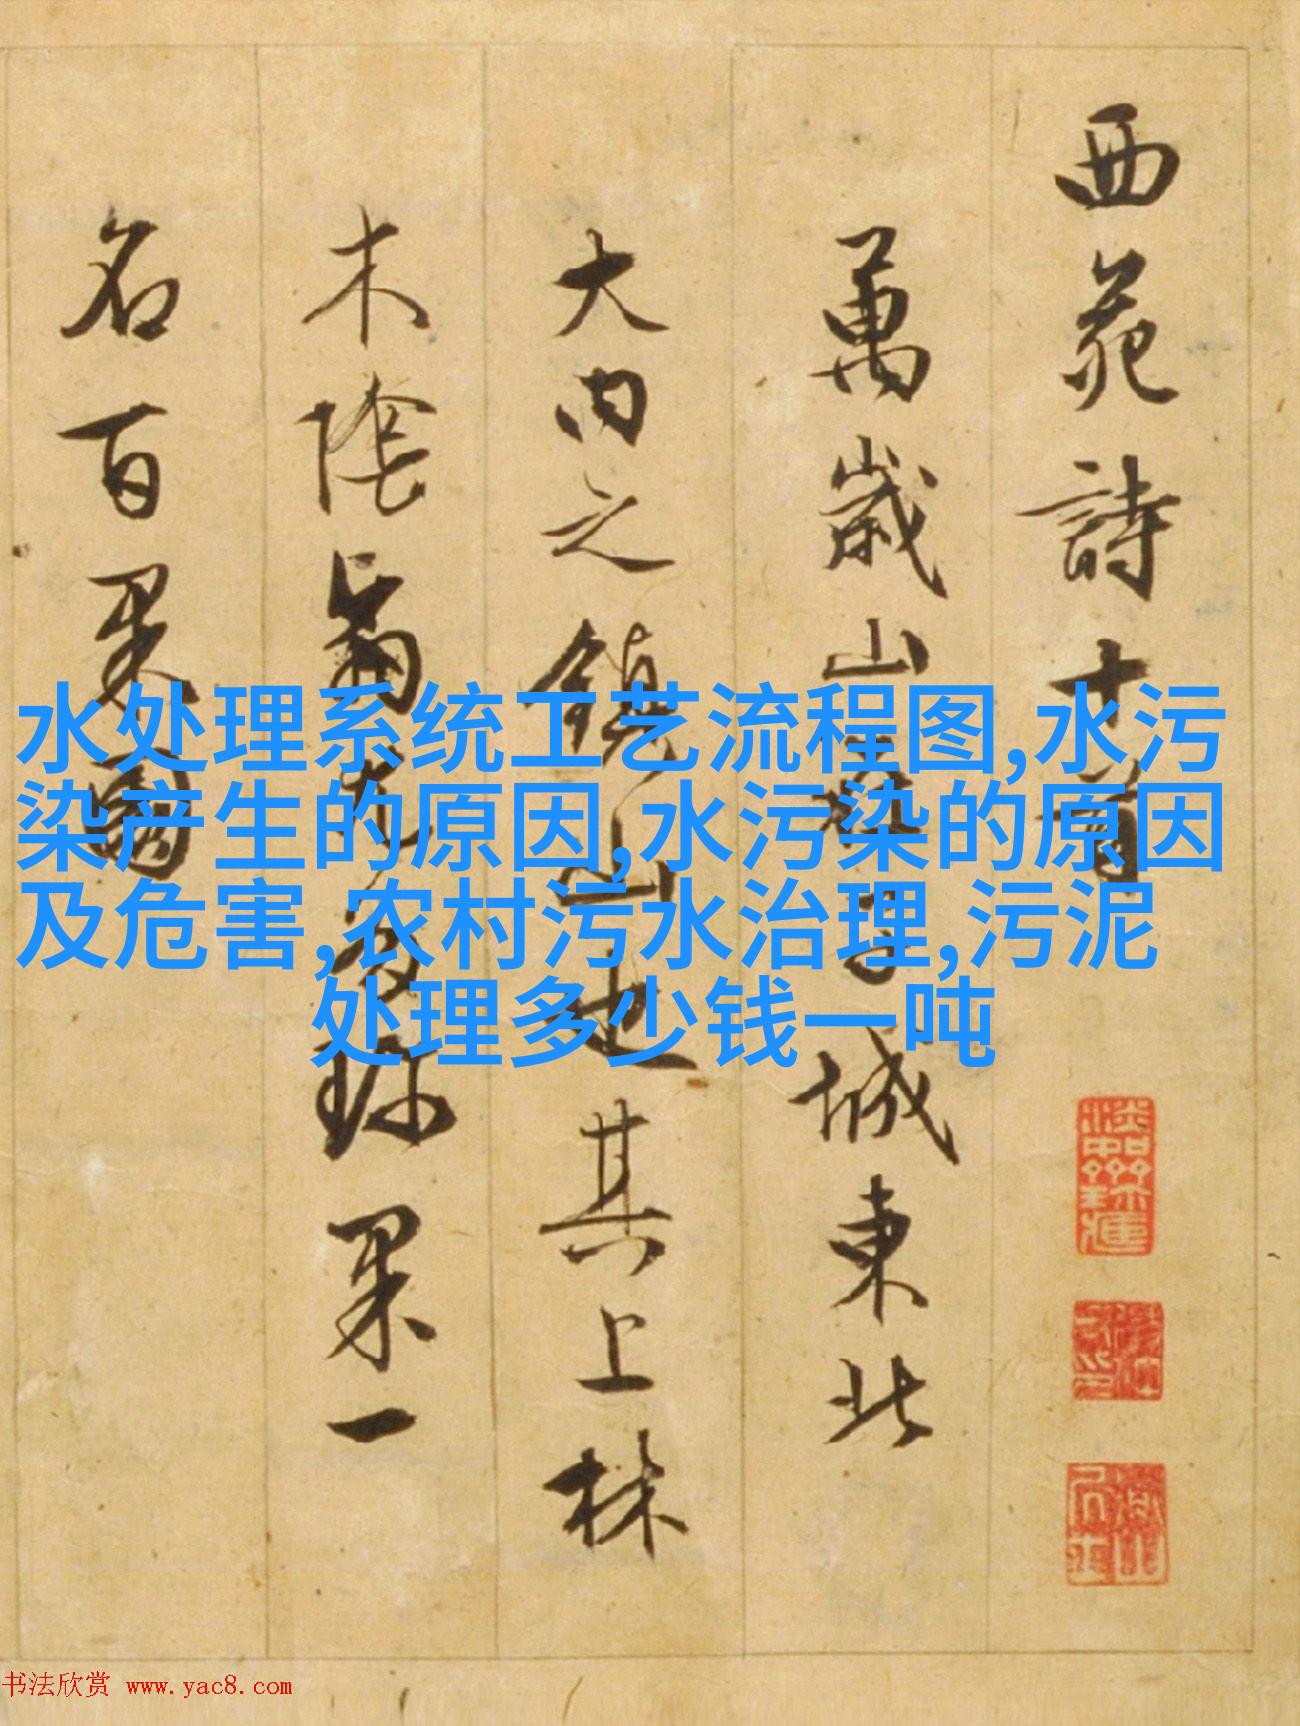 西苑詩十首
萬歲山在子城東北
大内之鎮山也其上林
木陰翳尤多珍果一
名百果園
水处理系统工艺流程图,水污
染产生的原因,水污染的原因
及危害,农村污水治理,污泥
处理多少钱一吨
书法欣赏 www.yac8.com